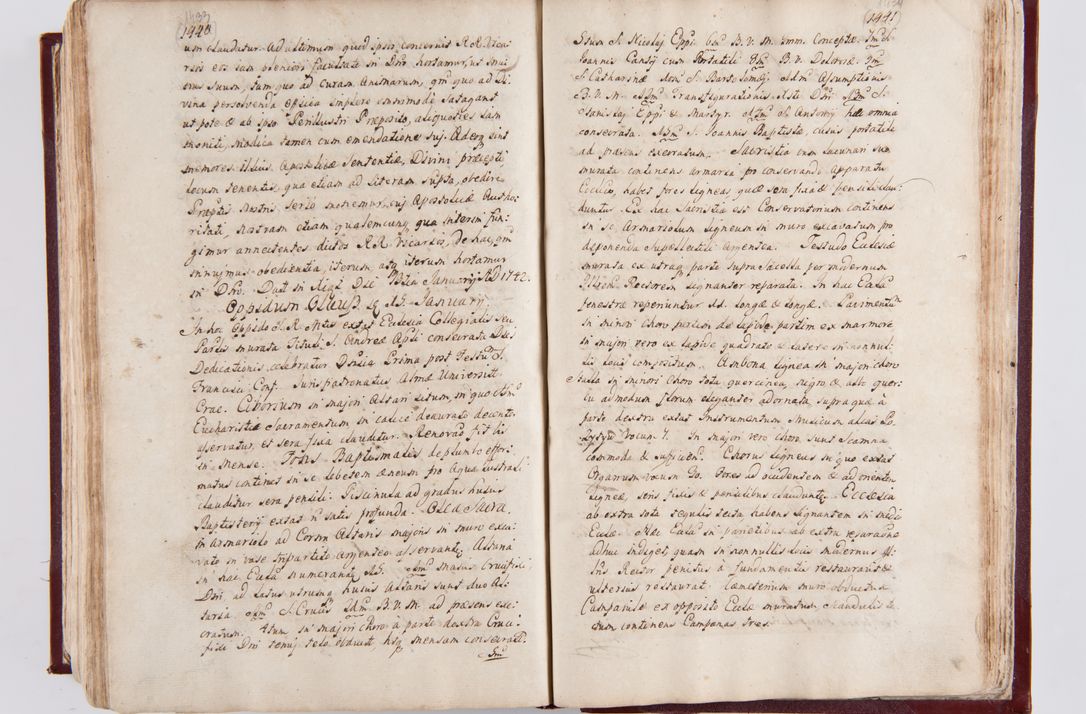 1433
(1440)
um claudatur. Ad ultimum quod ipsos concernit R R Vica
rios ex
erus suum, tum quo ad Curam Animarum, quam quo ad Di
vina persolvenda Officia implere omnimode satagant
ut pote ab ipso Perillustri Præposito, aliquoties jam
moniti, modica tamen cum emendatione sui. Adeoque sint
memores illius Apostolicæ Sententiæ, Divini præcepti
locum tenentis, qua etiam ad literam supta, obedire
Præptis nostris serio monemur, cui Apostolicæ Autho:
ritati, nostram etiam qualemcunque qua interim fun:
gimur annectentes dictos R.R. Vicarios, de hac, quam
innuimus obedientia, iterum atque iterum hortamur
in Dno. Datt in Die Januarij AD 1742.
Oppidum Olkusz. Januarij.
In hoc Oppido S. R. Mttis extat Ecclesia Collegialis seu
Parlis murata Tituli S. Andreæ Apli consecrata Dies
Dedicationis celebratur Dnica Prima post Festum S.
Francisci Conf. Juris patronatus Almæ Universitt
Crac. Ciborium in majori Altari situm, in quo Ssm
Eucharistiæ Sacramentum in calice deaurato decenter
asservatur, et sera fixa clauditur. Renovao fit bis
in Mense. Fons Baptismalis de plumbo effor:
matus continet in se lebetem æneum pro Aqua lustrali
clauditur sera pensili. Piscinula ad gradus hujus
Baptisterij extat non satis profunda. Olea Sacra.
in Armariolo ad Cornu Altaris majoris in muro exca:
vato in vase tripartito argenteo asservantur. Altaria
in hac Eccla numerantur majus Crucifixi,
Dni ad latus utrumque hujus Altaris sunt duo Al:
taria S. Crucis B. V. M. ad præsens exe:
cratum. 4tum in majori Choro a parte dextra Cruci:
fixi Dni tenui tela obduct, hsq mensam consecrat.
5m

(1441)
Stum S. Nicolaj Eppi 6m B. V. M. Imm. Conceptæ. 7m S.
Joannis Cantij cum Portatili 8m B. V. Dolorosæ. 9m
S. Catharinæ S. Bartholomæj Assumptionis
B. V. M. Transfigurationis Xsti Dni S.
Stanislaj Eppi & Martyr. S. Antonij hæc omnia
consecrata. S. Joannis Baptistæ, cujus portatile
ad præsens execratum. Sacristia cum lacunari sum
murata continens armaria pro conservando apparatu
Ecclico, habet fores ligneas quæ sera fixa & pensili clau:
duntur. Ex hac Sacristia est Conservatorium continens
in se Armariolum ligneum in muro excavatum pro
deponenda supellectili argentea. Testudo Ecclesiæ
murata ex utraque parte supra Sacella per modernum
Rectorem signanter reparata. In hac Eccla
fenestræ reperiuntur longæ & longæ. Pavimentum
in minori Choro partim de lapide partim ex marmore
in majori vero ex lapide quadrato & latere in nonnul:
lis locis compositum. Ambona lignea in majori choro
Stalla in minori Choro tota quercinea, nigro & albo quer:
cu ad modum florum eleganter adornata supra quæ a
parte dextra extat Instrumentum Musicum alias Po
zytyw Vocum 7. In majori vero Choro sunt Scamna
commoda & sufficien. Chorus ligneus in quo extat
Organum vocum 30. Fores ad occidentem & ad orientem
ligneæ, seris fixis & pensilibus clauduntur. Ecclesia
ab extra tota tegulis tecta habens signantem in medio
Ecclæ. Hæc Eccla in parietibus ab extra reparaone
adhuc indiget, quam in nonnullis locis modernus Illi:
Ins Rector penitus a fundamentis restauravit &
ulterius restaurat. Cæmeterium muro obductum
Campanile ex opposit Ecclæ muratum scandulis te:
ctum continens Campanas tres.